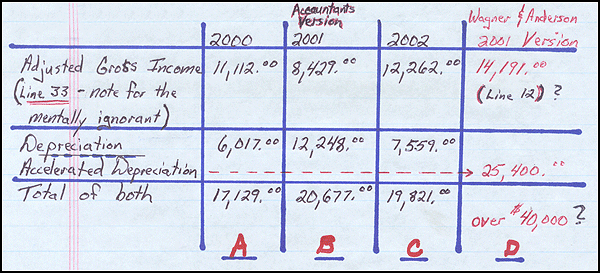 Accountants Version
Wagner & Anderson
2000 2001 2002 2001 Version
Adjusted Gross Income 11,112.00 8,429.00 12,262.00 14,191.00
(Line 33 - note for the (Line 12) ?
mentally ignorant)
Depreciation 6,017.00 12,248.00 7,559.00
Accelerated Depreciation 25,400.00
Total of both 17,129.00 20,677.00 19,821.00
over $40,000 ?
A B C D